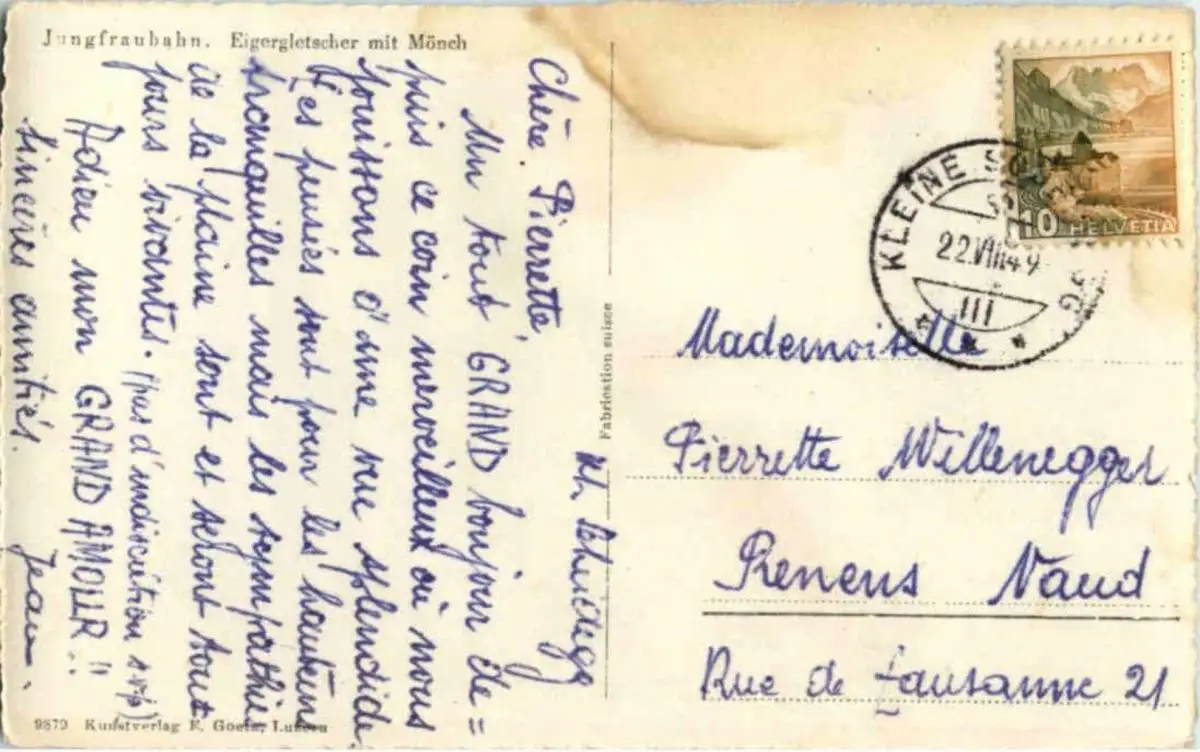 Jungfraubahn. Eigergletscher mit Mönch
Kl. Scheidegg
Chère Pierrette,
Un tout GRAND bonjour de=
puis ce coin merveilleux où nous
jouissons d'une vue splendide.
Les pensées sont pour les hauteurs
tranquilles mais les sympathies
de la plaine sont et seront tou=
jours vivantes. (pas d'indiscrétion svp)
Adieu mon GRAND AMOUR!!
Sincères amitiés. Jean.
Fabrication suisse
9879 Kunstverlag E. Goetz, Luzern
10 HELVETIA
KLEINE SC
22.VIII.49
III
Mademoiselle
Pierrette Willenegger
Renens Vaud
Rue de Lausanne 21